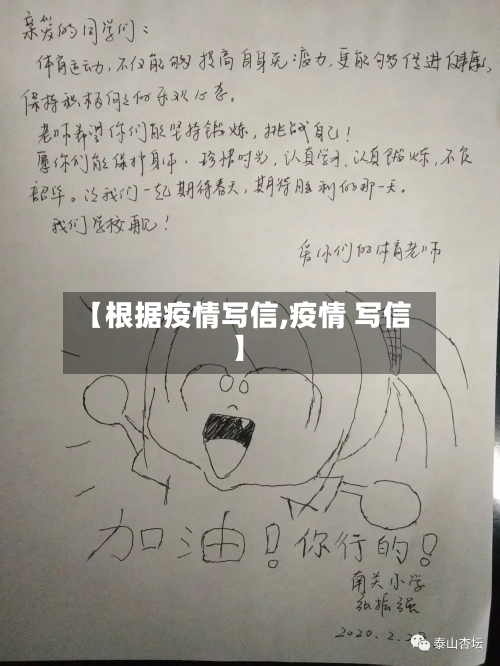 亲爱的同学们：
体育运动，不仅能够提高自身免疫力，更能够促进健康，
保持积极向上的乐观心态。
老师希望你们能坚持锻炼，挑战自己！
愿你们能保护身体，珍惜时光，认真学习，认真锻炼，不负
韶华。让我们一起期待春天，期待胜利的那一天。
我们学校再见！
爱你们的体育老师
【根据疫情写信,疫情 写信
】
加油！你行的！
南关小学
张振强
2020.2.
泰山杏坛